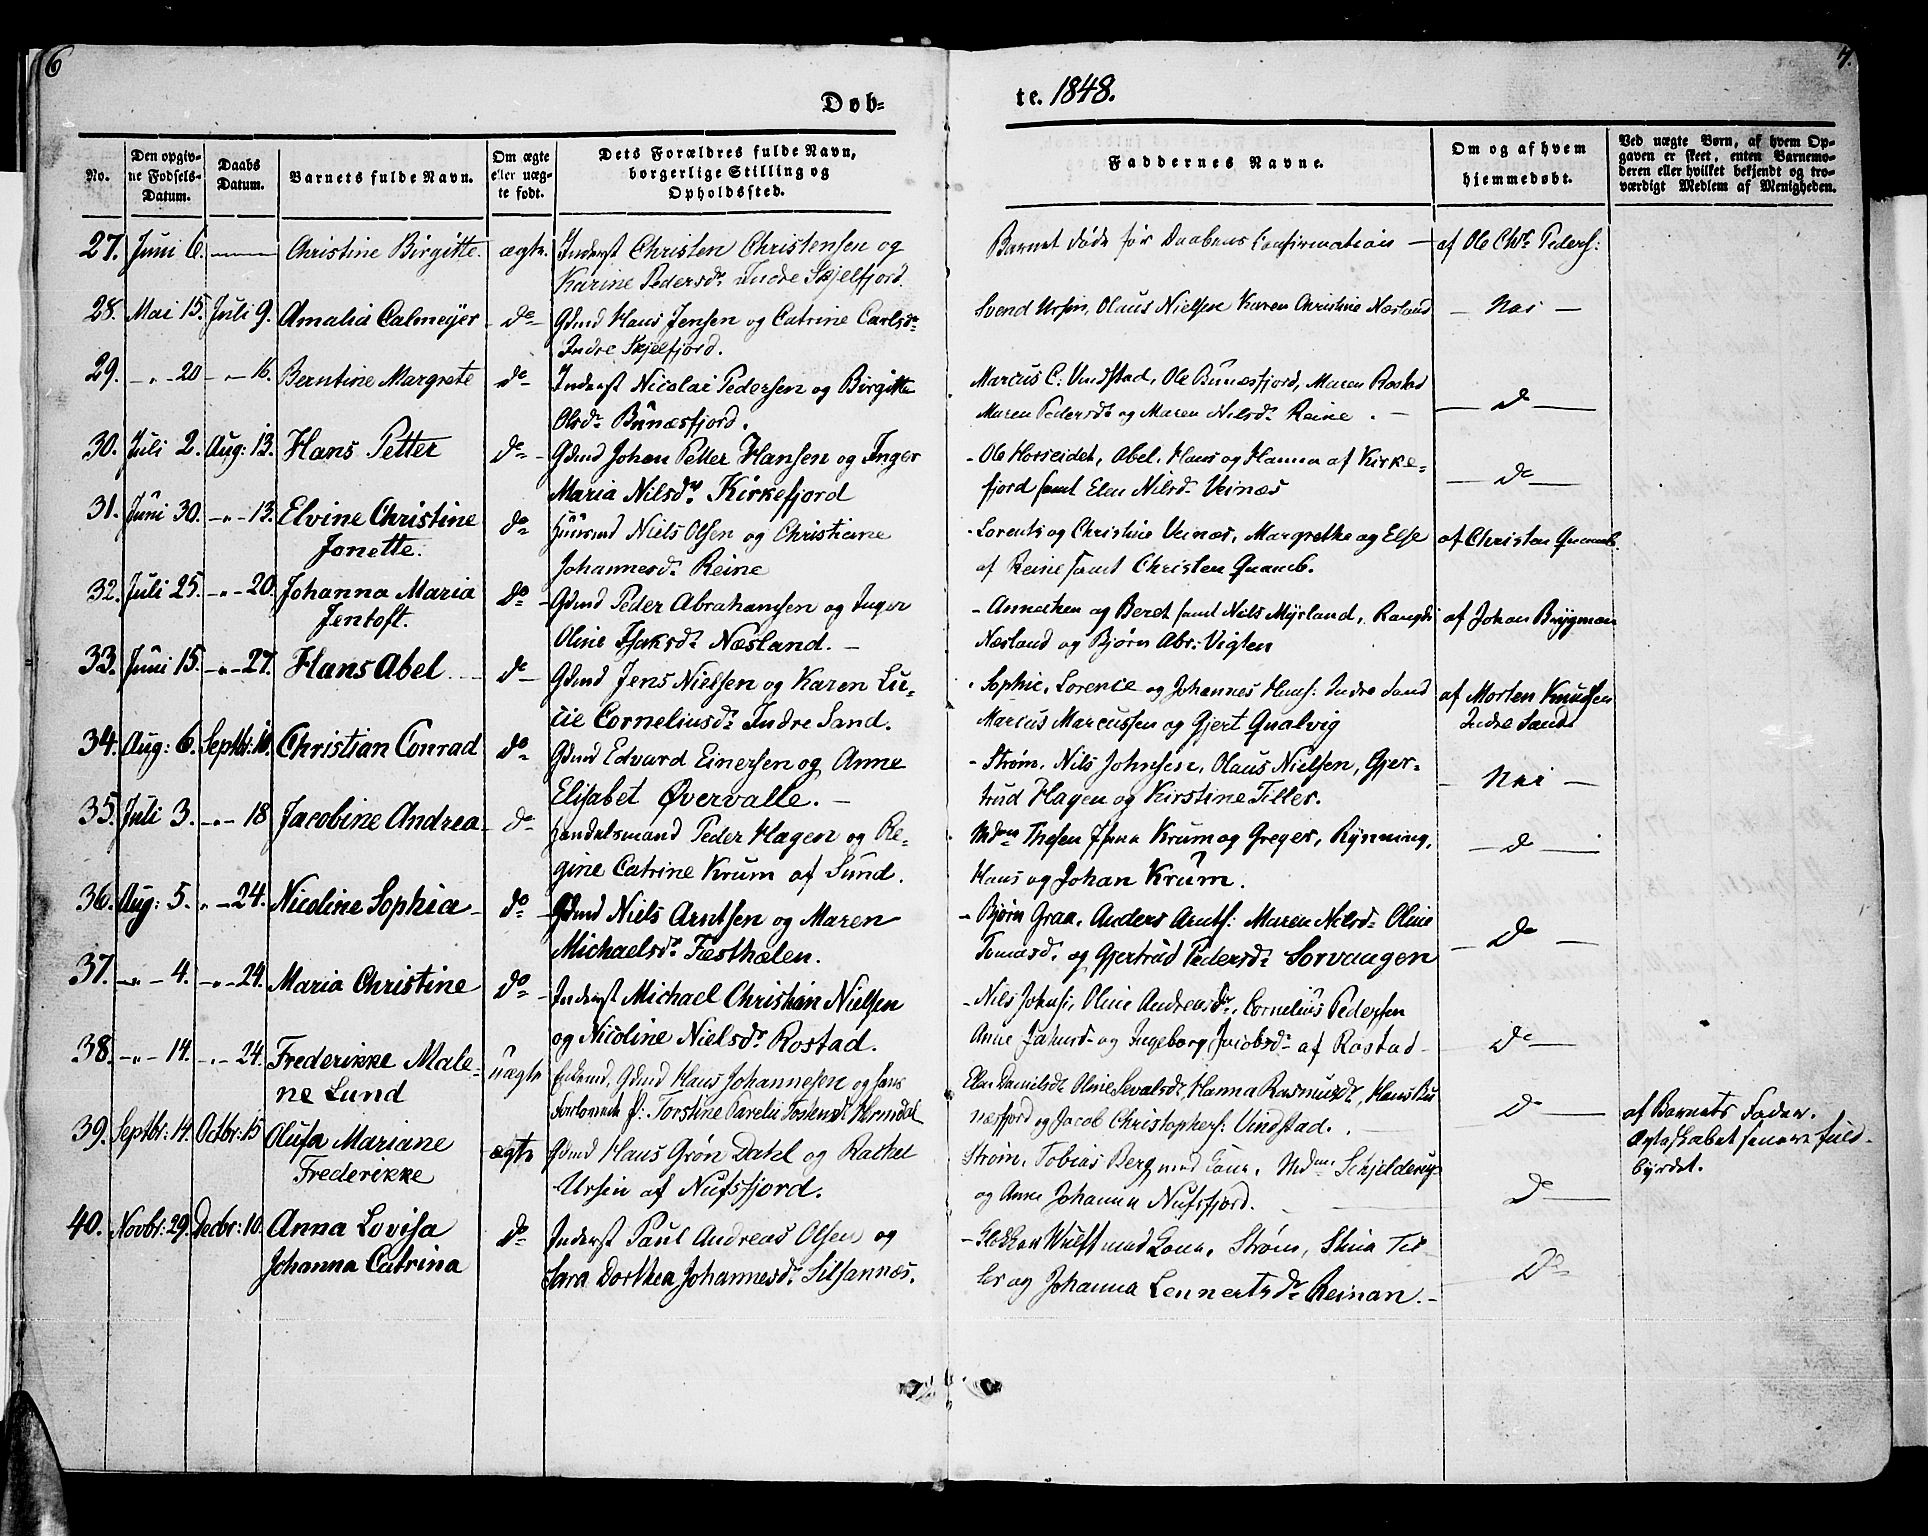 6
7.
Døb-
te. 1848.
No.
Den opgiv-
ne Fødsels-
Datum.
Daabs
Datum.
Barnets fulde Navn.
Om ægte
eller uæg-
te født.
Dets Forældres fulde Navn,
borgerlige Stilling og
Opholdssted.
Faddernes Navne.
Om og af hvem
hjemmedøbt.
Ved uægte Børn, af hvem Op-
gaven er skeet, enten Barnemo-
deren eller hvilket bekjendt og tro-
værdigt Medlem af Menigheden.
27. Juni 6. — Christine Birgitte. ægte. Inderst Christen Christensen og
Karine Pedersdr. Indre Skjelfjord.
Barnet døde før Daabens Confirmation — af Ole Chr. Peders:
28. Mai 15. Juli 9. Amalia Calmeyer - do - Gdmd Hans Jensen og Catrine Carlsdr
Indre Skjelfjord.
Svend Ursin, Olaus Nielsen Karen Christine Næsland — Nei —
29. -"- 20 -"- 16. Berntine Margrete do - Inderst Nicolai Pedersen og Birgitte
Olsdr. Bunæsfjord.
Marcus C: Vindstad, Ole Bunæsfjord, Maren Rostad
Maren Pedersdr og Maren Nilsdr Reine. — — do —
30. Juli 2. Aug: 13. Hans Petter do - Gdmd Johan Petter Hansen og Inger
Maria Nilsdr. Kirkefjord
- Ole Horseidet, Abel, Hans og Hanna af Kirke-
fjord samt Elen Nilsdr Veinæs — do —
31. Juni 30. -"- 13. Elvine Christine
Jonette. do Huusmd Niels Olsen og Christiane
Johannesdr. Reine
- Lorents og Christine Veinæs, Margrethe og Else
af Reine samt Christen Quamb. af Christen Quamb.
32. Juli 25. -"- 20. Johanna Maria
Jentoft. do - Gdmd Peder Abrahamsen og Inger
Oline Isaksdr. Næsland. —
- Anniken og Beret samt Nils Myrland, Rangdi
Næsland og Bjørn Abr: Vigten af Johan Brygman
33. Juni 15. -"- 27. Hans Abel do - Gdmd Jens Nielsen og Karen Lu-
cie Corneliusdr. Indre Sand.
- Sophie, Lorence og Johannes Hans: Indre Sand
Marcus Marcussen og Gjert Qualvig af Morten Knudsen
Indre Sand
34. Aug: 6. Septbr: 10. Christian Conrad do Gdmd Edvard Einersen og Anne
Elisabet Øvervalle. —
- Strøm, Nils Johnsen, Olaus Nielsen, Gjer-
trud Hagen og Kirstine Tiller. — Nei —
35. Juli 3. -"- 18 Jacobine Andrea - do - Handelsmand Peder Hagen og Re-
gine Catrine Krum af Sund.
Mdme Thesen Krum og Greger, Rynning,
Hans og Johan Krum. — do —
36. Aug: 5. -"- 24. Nicoline Sophia - do - Gdmd Niels Arntsen og Maren
Michaelsdr. Fresthælen.
- Bjørn Graa, Anders Arnts: Maren Nilsdr Oline
Tomasdr. og Gjertrud Pedersdr. Sørvaagen — do —
37. -"- 4. -"- 24. Maria Christine do - Inderst Michael Christian Nielsen
og Nicoline Nielsdr. Rostad.
- Nils Johns:, Oline Andreasdr., Cornelius Pedersen
Anne og Ingeborg Jacobsdr. af Rostad - — do —
38. -"- 14. -"- 24. Frederikke Male-
ne Lund uægte Enkemd, Gdmd Hans Johannesen og hans
forlovede P: Torstine Karelii
Elen Danielsdr Oline Sevalsdr, Hanna Rasmusdr, Hans Bu
næsfjord og Jacob Christophers: Vindstad. — — do — af Barnets Fader.
Ægteskabet senere fuld-
byrdet.
39. Septbr: 14. Octbr: 15 Olufa Mariane
Frederikke ægte Gdmd Hans Grøn Datel og Rachel
Ursin af Nufsfjord.
Strøm, Tobias Berg med Kone, Mdme Schjelderup
og Anne Johanna Nufsfjord. — do —
40. Novbr: 29. Decbr: 10. Anna Lovisa
Johanna Catrina do Inderst Paul Andreas Olsen og
Sara Dorthea Johannesdr. Silsannæs.
- Klokker Wulff med Kone, Strøm, Stina Til-
ler og Johanna Lennertsdr. Reinan. — do